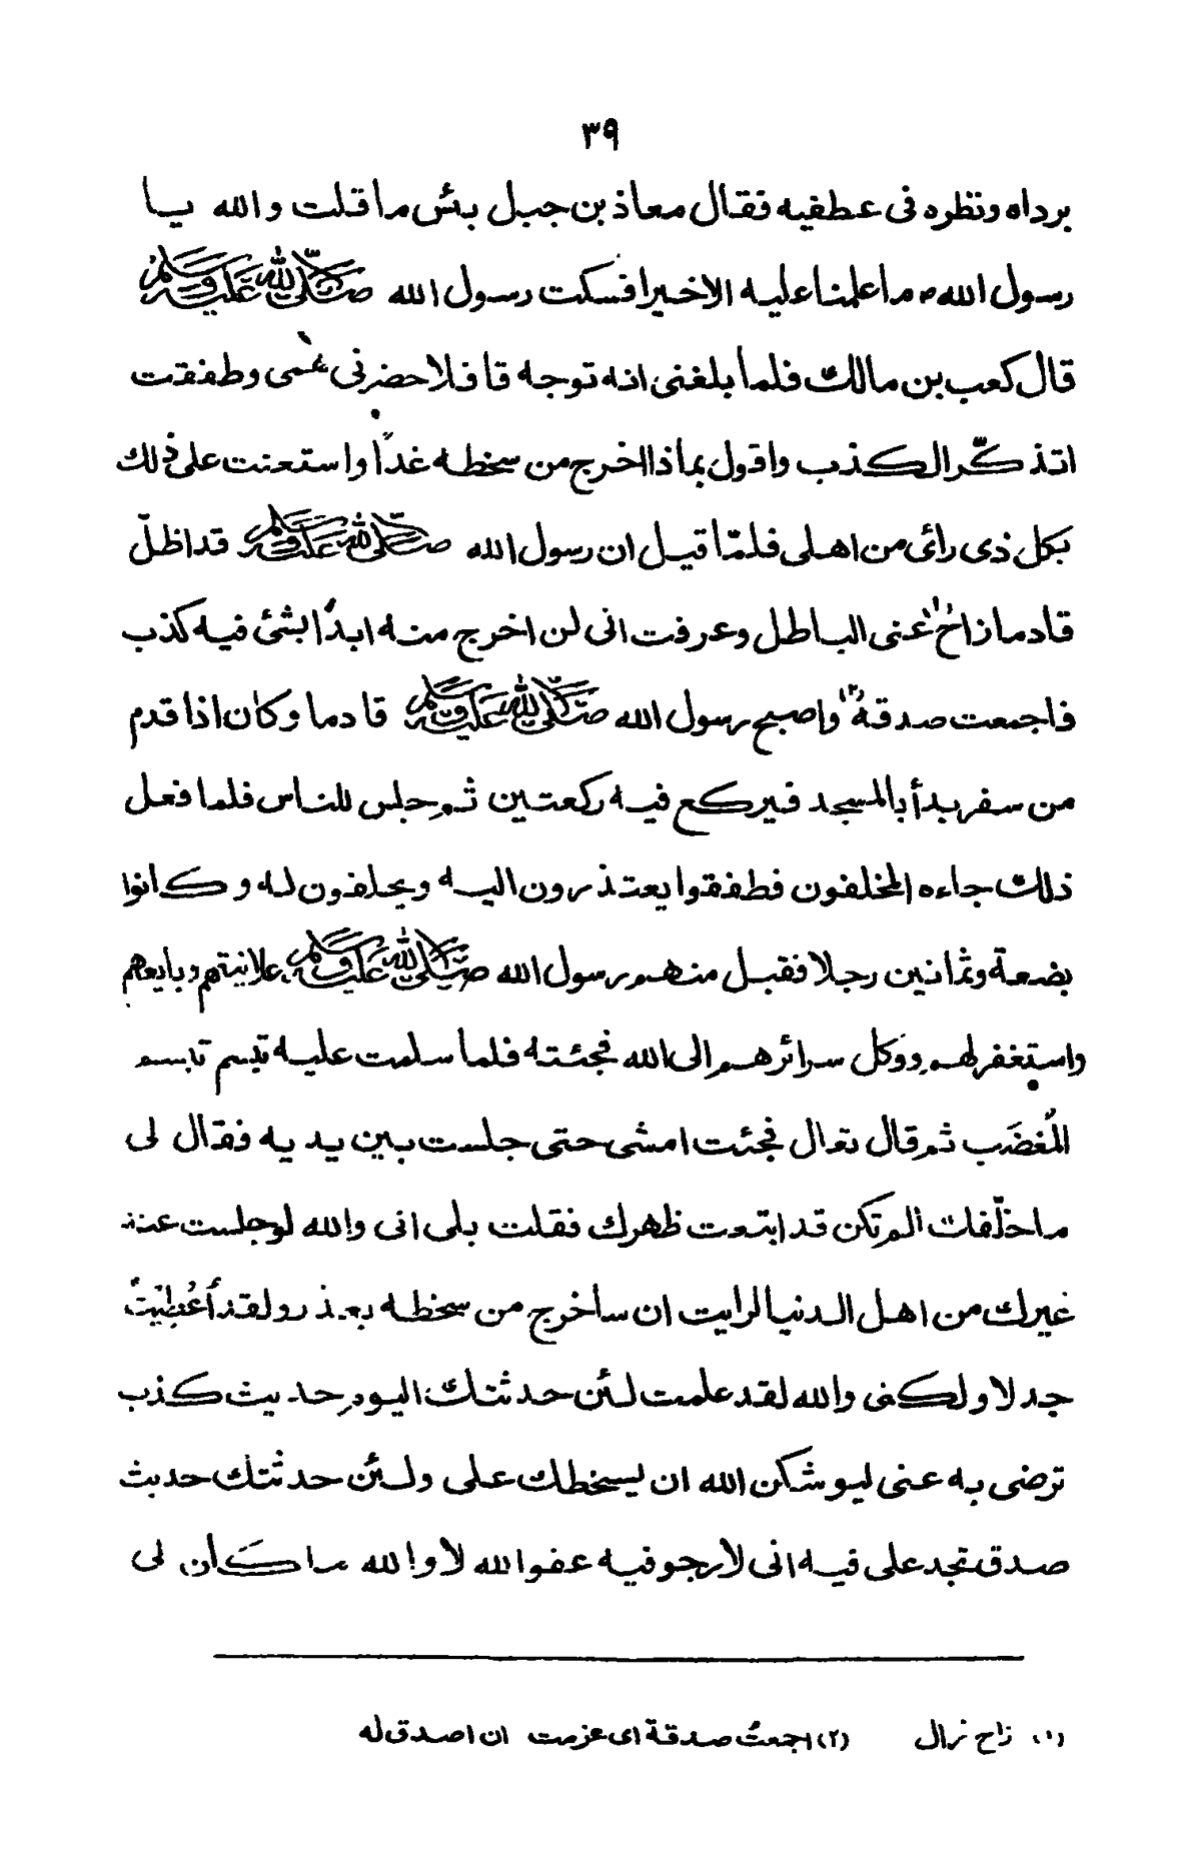 ٣٩
برداه ونظره فى عطفيه فقال معاذ بن جبل بئس ما قلت والله يا
رسول الله ما علمنا عليه الاخيرا فسكت رسول الله صلى الله عليه وسلم
قال كعب بن مالك فلما بلغنى انه توجه قافلا حضرنى همى وطفقت
اتذكّر الكذب واقول بماذا اخرج من سخطه غداً واستعنت على ذلك
بكل ذى رائ من اهلى فلمّا قيل ان رسول الله صلى الله عليه وسلم قد اظلّ
قادما زاح (١) عنى الباطل وعرفت انى لن اخرج منه ابداً بشئ فيه كذب
فاجمعت صدقة (٢) واصبح رسول الله صلى الله عليه وسلم قادما وكان اذا قدم
من سفر بدأ بالمسجد فيركع فيه ركعتين ثم جلس للناس فلما فعل
ذلك جاءه المخلفون فطفقوا يعتذرون اليه ويحلفون له وكانوا
بضعة وثمانين رجلا فقبل منهم رسول الله صلى الله عليه وسلم علانيتهم وبايعهم
واستغفر لهم ووكل سرائرهم الى الله فجئته فلما سلمت عليه تبسم تبسم
المُغضَب ثم قال تعال فجئت امشى حتى جلست بين يديه فقال لى
ما خلّفك الم تكن قد ابتعت ظهرك فقلت بلى انى والله لو جلست عند
غيرك من اهل الدنيا لرايت ان سأخرج من سخطه بعذر ولقد أُعْطِيْتُ
جدلا ولكنى والله لقد علمت لئن حدثتك اليوم حديث كذب
ترضى به عنى ليوشكن الله ان يسخطك على ولئن حدثتك حديث
صدق تجد على فيه انى لارجو فيه عفو الله لا والله ما كان لى
(١) زاح نرال (٢) اجمعتُ صدقة اى عزمت ان اصدق له